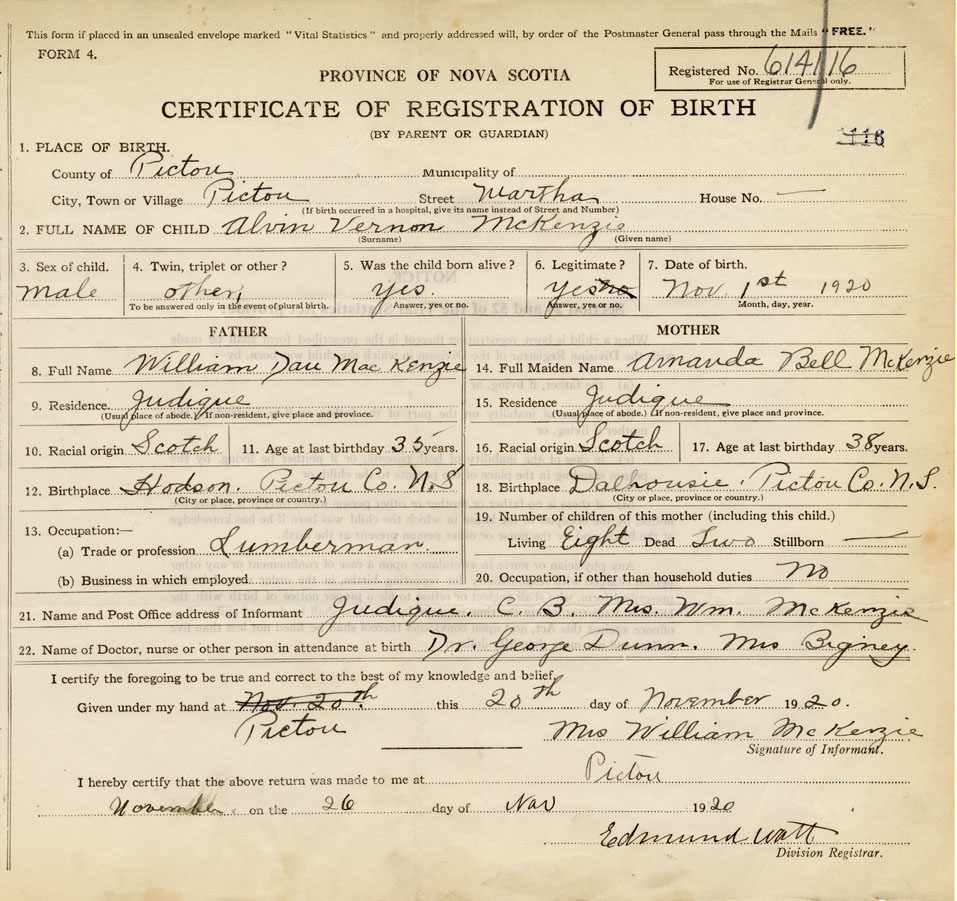 This form if placed in an unsealed envelope marked "Vital Statistics" and properly addressed will, by order of the Postmaster General pass through the Mails "FREE."
FORM 4.
Registered No. 614116
For use of Registrar General only.
PROVINCE OF NOVA SCOTIA
CERTIFICATE OF REGISTRATION OF BIRTH
(BY PARENT OR GUARDIAN)
116
1. PLACE OF BIRTH.
County of Pictou Municipality of
City, Town or Village Pictou Street Wartha House No. —
(If birth occurred in a hospital, give its name instead of Street and Number)
2. FULL NAME OF CHILD Alvin Vernon McKenzie
(Surname) (Given name)
3. Sex of child. 4. Twin, triplet or other? 5. Was the child born alive? 6. Legitimate? 7. Date of birth.
Male other, yes. yes no Nov. 1st 1920
To be answered only in the event of plural birth. Answer, yes or no. Answer, yes or no. Month, day, year.
FATHER MOTHER
8. Full Name William Dau Mac Kenzie 14. Full Maiden Name Amanda Bell McKenzie
9. Residence. Judique 15. Residence Judique
(Usual place of abode.) If non-resident, give place and province. (Usual place of abode.) If non-resident, give place and province.
10. Racial origin Scotch 11. Age at last birthday 35 years. 16. Racial origin Scotch 17. Age at last birthday 38 years.
12. Birthplace Hodson. Pictou Co. N.S 18. Birthplace Dalhousie. Pictou Co. N.S.
(City or place, province or country.) (City or place, province or country.)
13. Occupation:— 19. Number of children of this mother (including this child.)
(a) Trade or profession Lumberman. Living Eight Dead Two Stillborn —
(b) Business in which employed 20. Occupation, if other than household duties No
21. Name and Post Office address of Informant Judique. C. B. Mrs. Wm. McKenzie
22. Name of Doctor, nurse or other person in attendance at birth Dr. George Dunn. Mrs Bigney.
I certify the foregoing to be true and correct to the best of my knowledge and belief.
Given under my hand at Nov. 20th this 20th day of November 1920.
Pictou Mrs William McKenzie
Signature of Informant.
I hereby certify that the above return was made to me at Pictou
November on the 26 day of Nov 1920
Edmund Watt
Division Registrar.